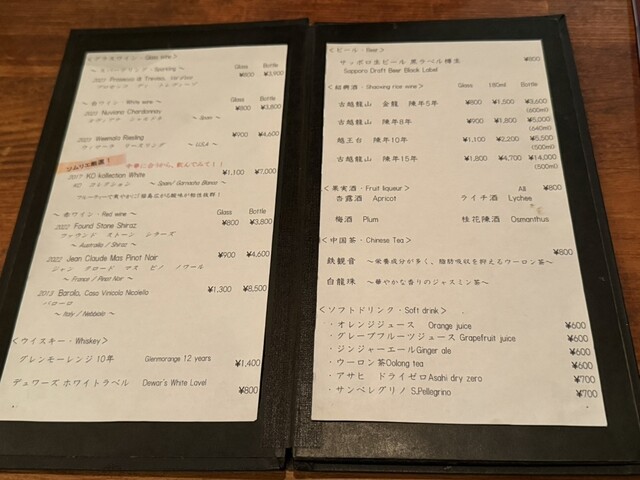 ＜グラスワイン・Glass wine＞
～スパークリング・Sparkling～ Glass Bottle
Prosecco di Treviso, ¥800 ¥3,900
プロセッコ ディ
～白ワイン・White wine～ Glass Bottle
Nuviana Chardonnay ¥800 ¥3,800
ヌヴィアナ シャルドネ ～Spain～
Riesling ¥900 ¥4,600
リースリング
ソムリエ厳選！ 中華に合うから、飲んでみて！！
2017 KO kollection White ¥1,100 ¥7,000
KO コレクション ～Spain/ Garnacha Blanca～
～赤ワイン・Red wine～ Glass Bottle
2022 Found Stone Shiraz ¥800 ¥3,800
ファウンド ストーン シラーズ
～Australia / Shiraz～
2022 Jean Claude Mas Pinot Noir ¥900 ¥4,600
ジャン クロード マス ピノ ノワール
～France / Pinot Noir～
2013 Barolo, Casa Vinicola Nicolello ¥1,300 ¥8,500
バローロ
～Italy / Nebbiolo～
＜ウイスキー・Whiskey＞
グレンモーレンジ 10年 Glenmorange 12 years ¥1,400
デュワーズ ホワイトラベル Dewar's White Lavel ¥800
＜ビール・Beer＞
サッポロ生ビール 黒ラベル樽生 ¥800
Sapporo Draft Beer Black Label
＜紹興酒・Shaoxing rice wine＞ Glass 180ml Bottle
古越龍山 金龍 陳年5年 ¥800 ¥1,500 ¥3,600
(600ml)
古越龍山 陳年8年 ¥900 ¥1,800 ¥5,000
(640ml)
越王台 陳年10年 ¥1,100 ¥2,200 ¥5,500
(500ml)
古越龍山 陳年15年 ¥1,800 ¥4,700 ¥14,000
(500ml)
＜果実酒・Fruit liqueur＞ All ¥800
杏露酒 Apricot ライチ酒 Lychee
梅酒 Plum 桂花陳酒 Osmanthus
＜中国茶・Chinese Tea＞ ¥800
鉄観音 ～栄養成分が多く、脂肪吸収を抑えるウーロン茶～
白龍珠 ～華やかな香りのジャスミン茶～
＜ソフトドリンク・Soft drink＞
・オレンジジュース Orange juice ¥600
・グレープフルーツジュース Grapefruit juice ¥600
・ジンジャーエール Ginger ale ¥600
・ウーロン茶 Oolong tea ¥600
・アサヒ ドライゼロ Asahi dry zero ¥700
・サンペレグリノ S.Pellegrino ¥700